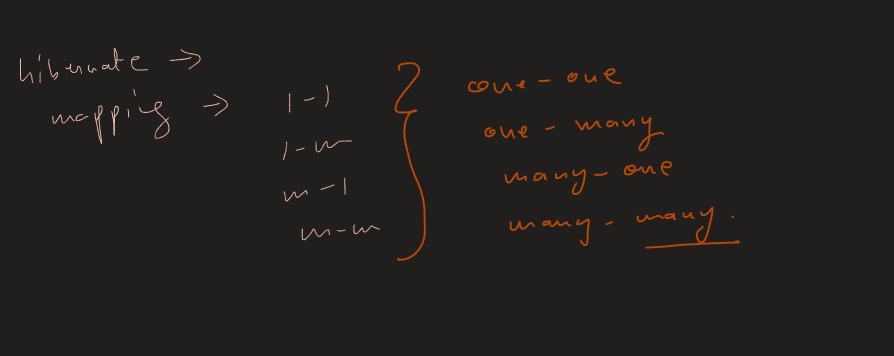 hibernate →
mapping → 1-1
1-m
m-1
m-m
one-one
one-many
many-one
many-many.